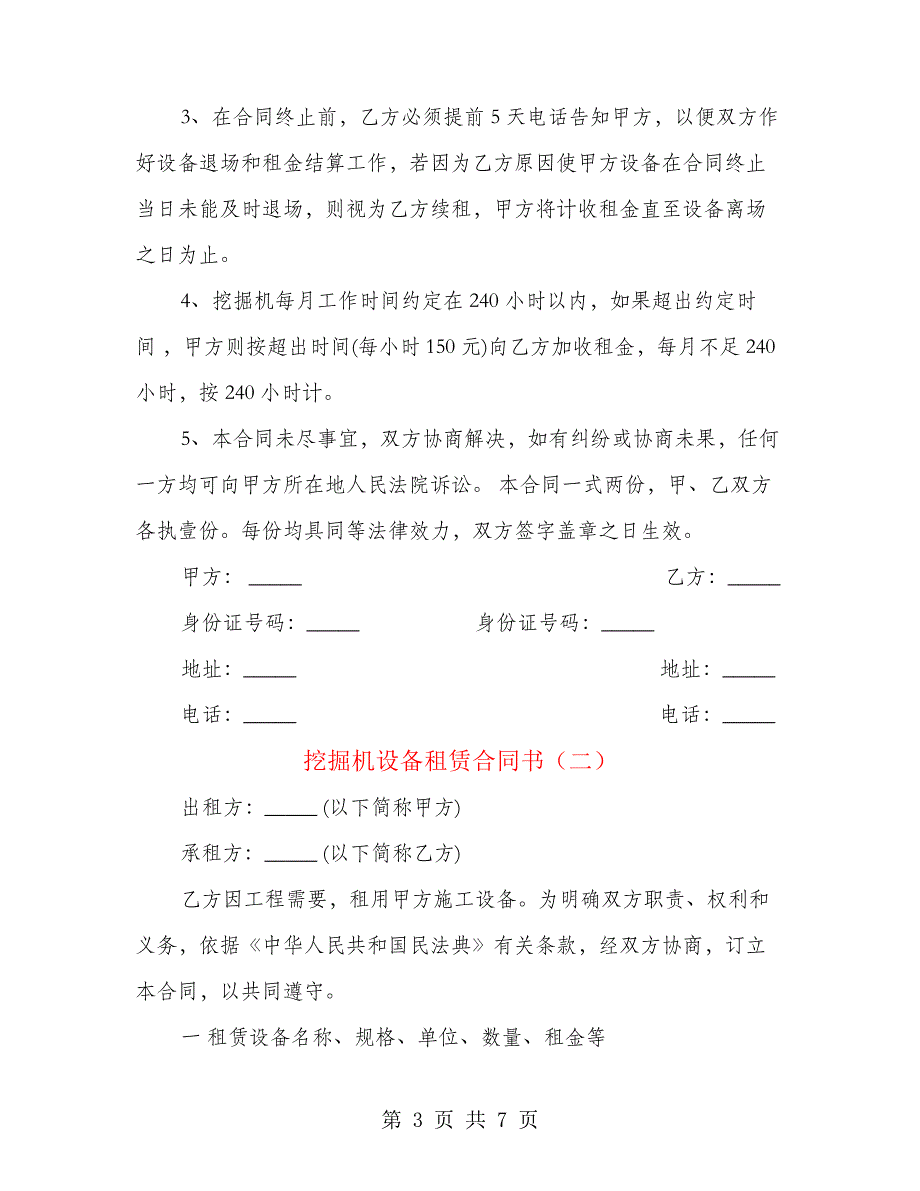 3、在合同终止前，乙方必须提前 5 天电话告知甲方，以便双方作
好设备退场和租金结算工作，若因为乙方原因使甲方设备在合同终止
当日未能及时退场，则视为乙方续租，甲方将计收租金直至设备离场
之日为止。
4、挖掘机每月工作时间约定在 240 小时以内，如果超出约定时
间 ，甲方则按超出时间(每小时 150 元)向乙方加收租金，每月不足 240
小时，按 240 小时计。
5、本合同未尽事宜，双方协商解决，如有纠纷或协商未果，任何
一方均可向甲方所在地人民法院诉讼。 本合同一式两份，甲、乙双方
各执壹份。每份均具同等法律效力，双方签字盖章之日生效。
甲方： _____ 乙方：_____
身份证号码：_____ 身份证号码：_____
地址：_____ 地址：_____
电话：_____ 电话：_____
挖掘机设备租赁合同书（二）
出租方：_____ (以下简称甲方)
承租方：_____ (以下简称乙方)
乙方因工程需要，租用甲方施工设备。为明确双方职责、权利和
义务，依据《中华人民共和国民法典》有关条款，经双方协商，订立
本合同，以共同遵守。
一 租赁设备名称、规格、单位、数量、租金等
第 3 页 共 7 页